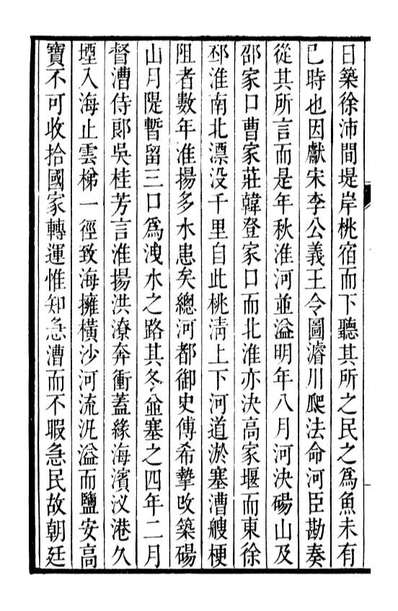 日築徐沛間堤岸桃宿而下聽其所之民之爲魚未有
已時也因獻宋李公義王令圖濬川爬法命河臣勘奏
從其所言而是年秋淮河並溢明年八月河決碭山及
邵家口曹家莊韓登家口而北淮亦決高家堰而東徐
邳淮南北漂没千里自此桃清上下河道淤塞漕艘梗
阻者數年淮揚多水患矣總河都御史傅希摯改築碭
山月隄暫留三口爲洩水之路其冬並塞之四年二月
督漕侍郎吳桂芳言淮揚洪潦奔衝蓋緣海濱汊港久
堙入海止雲梯一徑致海擁橫沙河流汎溢而鹽安高
寶不可收拾國家轉運惟知急漕而不暇急民故朝廷